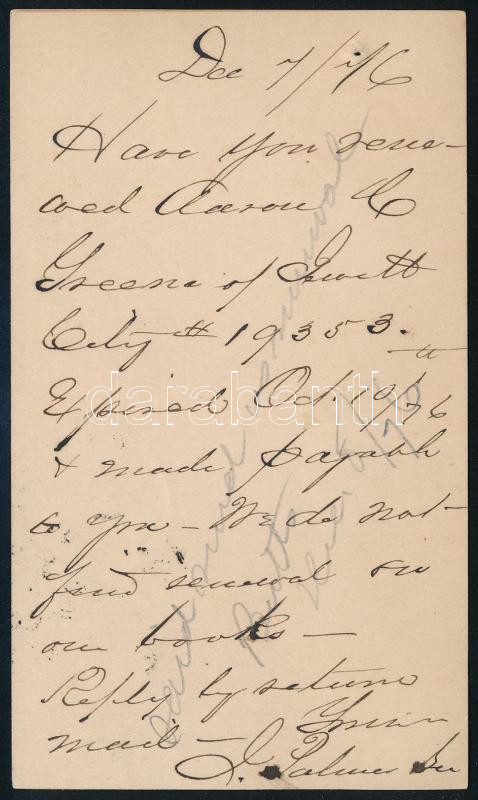 Dec 7/76
Have you rene-
wed Aaron C
Greene of Jewett
City # 19353.
Expired Oct. 10th/76
& made payable
to you - We do not
find renewal on
our books -
Reply by return
mail -
Yours
J. Palmer Sec
darabanth
renewal